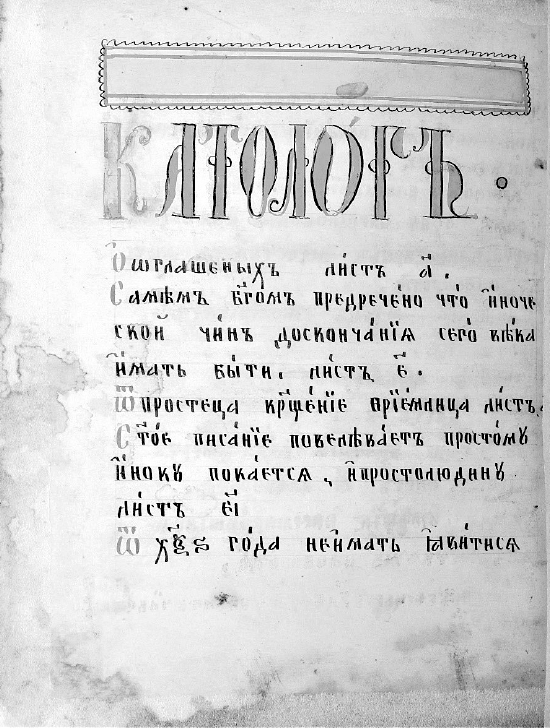 Катологъ.
Ѽ ѡглашеныхъ листъ а҃.
Самѣмъ бг҃омъ предречено что и҆ноче
ской чинъ доскончанїѧ сего вѣка
и҆мать быти. листъ е҃.
Ѿ простеца кр҃щенїе прїемлюща листъ
Ст҃ое писанїе повелѣваетъ простомꙋ
и҆нокꙋ покаетсѧ, и҆простолюдинꙋ
листъ е҃і
Ѿ х҃ѯѕ года неимать ꙗ҆витисѧ